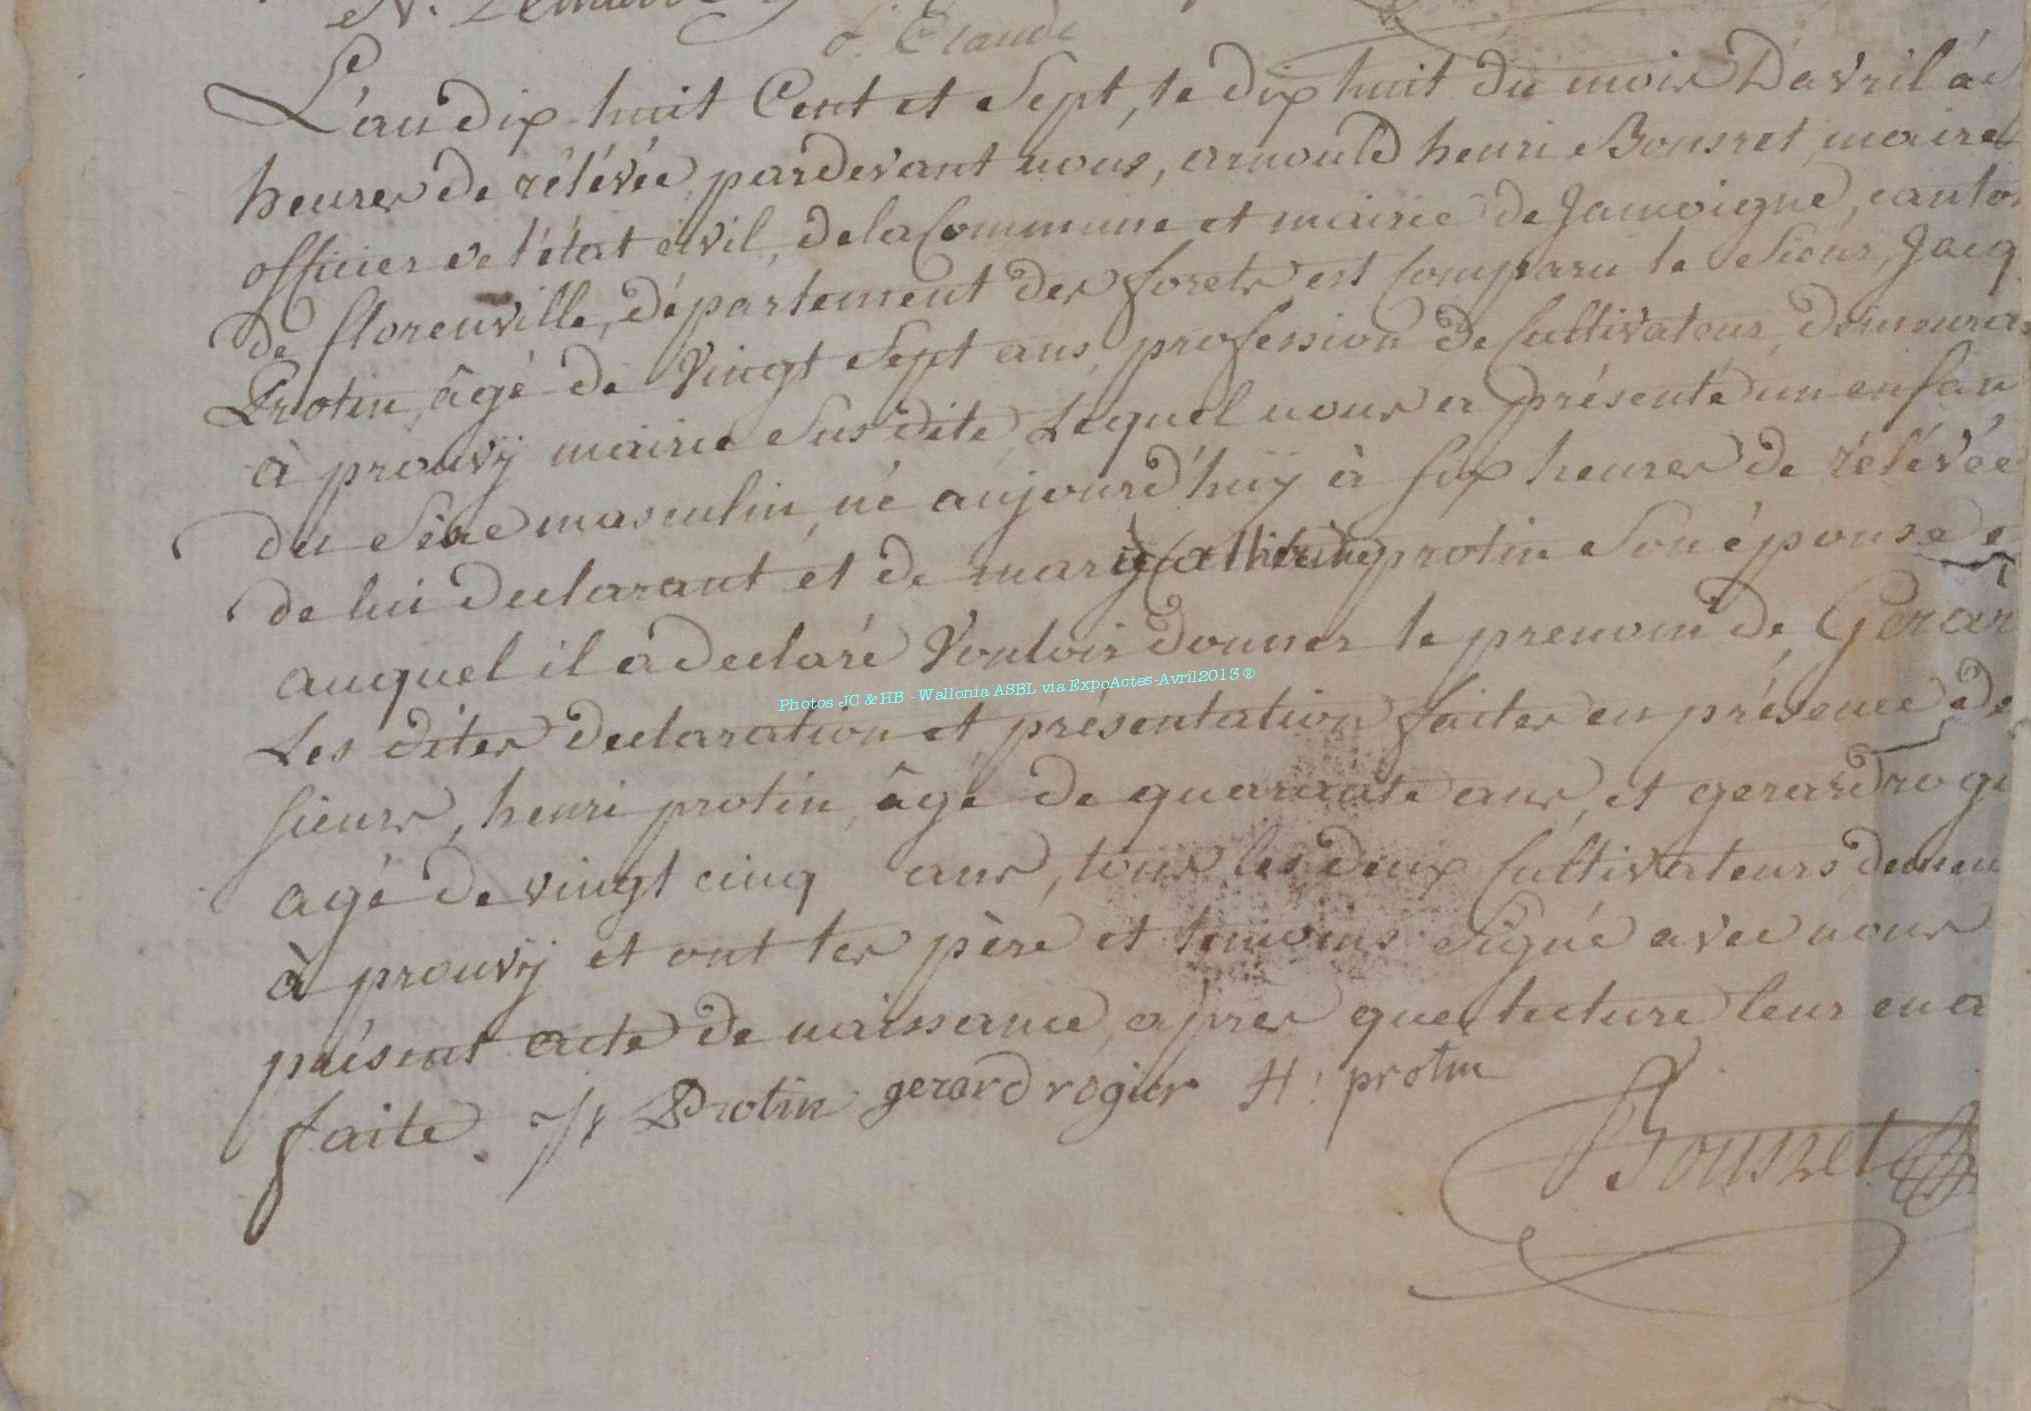 f. Claude
L'an dix huit Cent et Sept, le dix huit du mois D'avril à
heures de rélévée, pardevant nous, arnould henri Bousret, maire
officier de l'état civil, de la Commune et mairie de Jamoigne, canto
de florenville, département des forets est Comparu le Sieur, Jacq
Protin, âgé de Vingt Sept ans, profession de Cultivateur, demeura
à prouvÿ mairie Susdite, Lequel nous a présenté un enfan
du Séxe masculin, né aujourd'huÿ à six heures de rélévée
de lui declarant et de marie Catherine protin Son épouse
auquel il a declaré Vouloir donner le prenom de, Gerar
Les dites declaration et présentation faites en présence de
sieurs, henri protin, âgé de quarante ans, et gerard rogi
agé de vingt cinq ans, tous les deux Cultivateurs demeu
à prouvÿ et ont les père et temoins Signé avec nous
présent acte de naissance, apres que lecture leur en a
faite. Protin gerard rogier H : protin
Bousret
Photos JC & HB - Wallonia ASBL via ExpoActes-Avril2013 ®